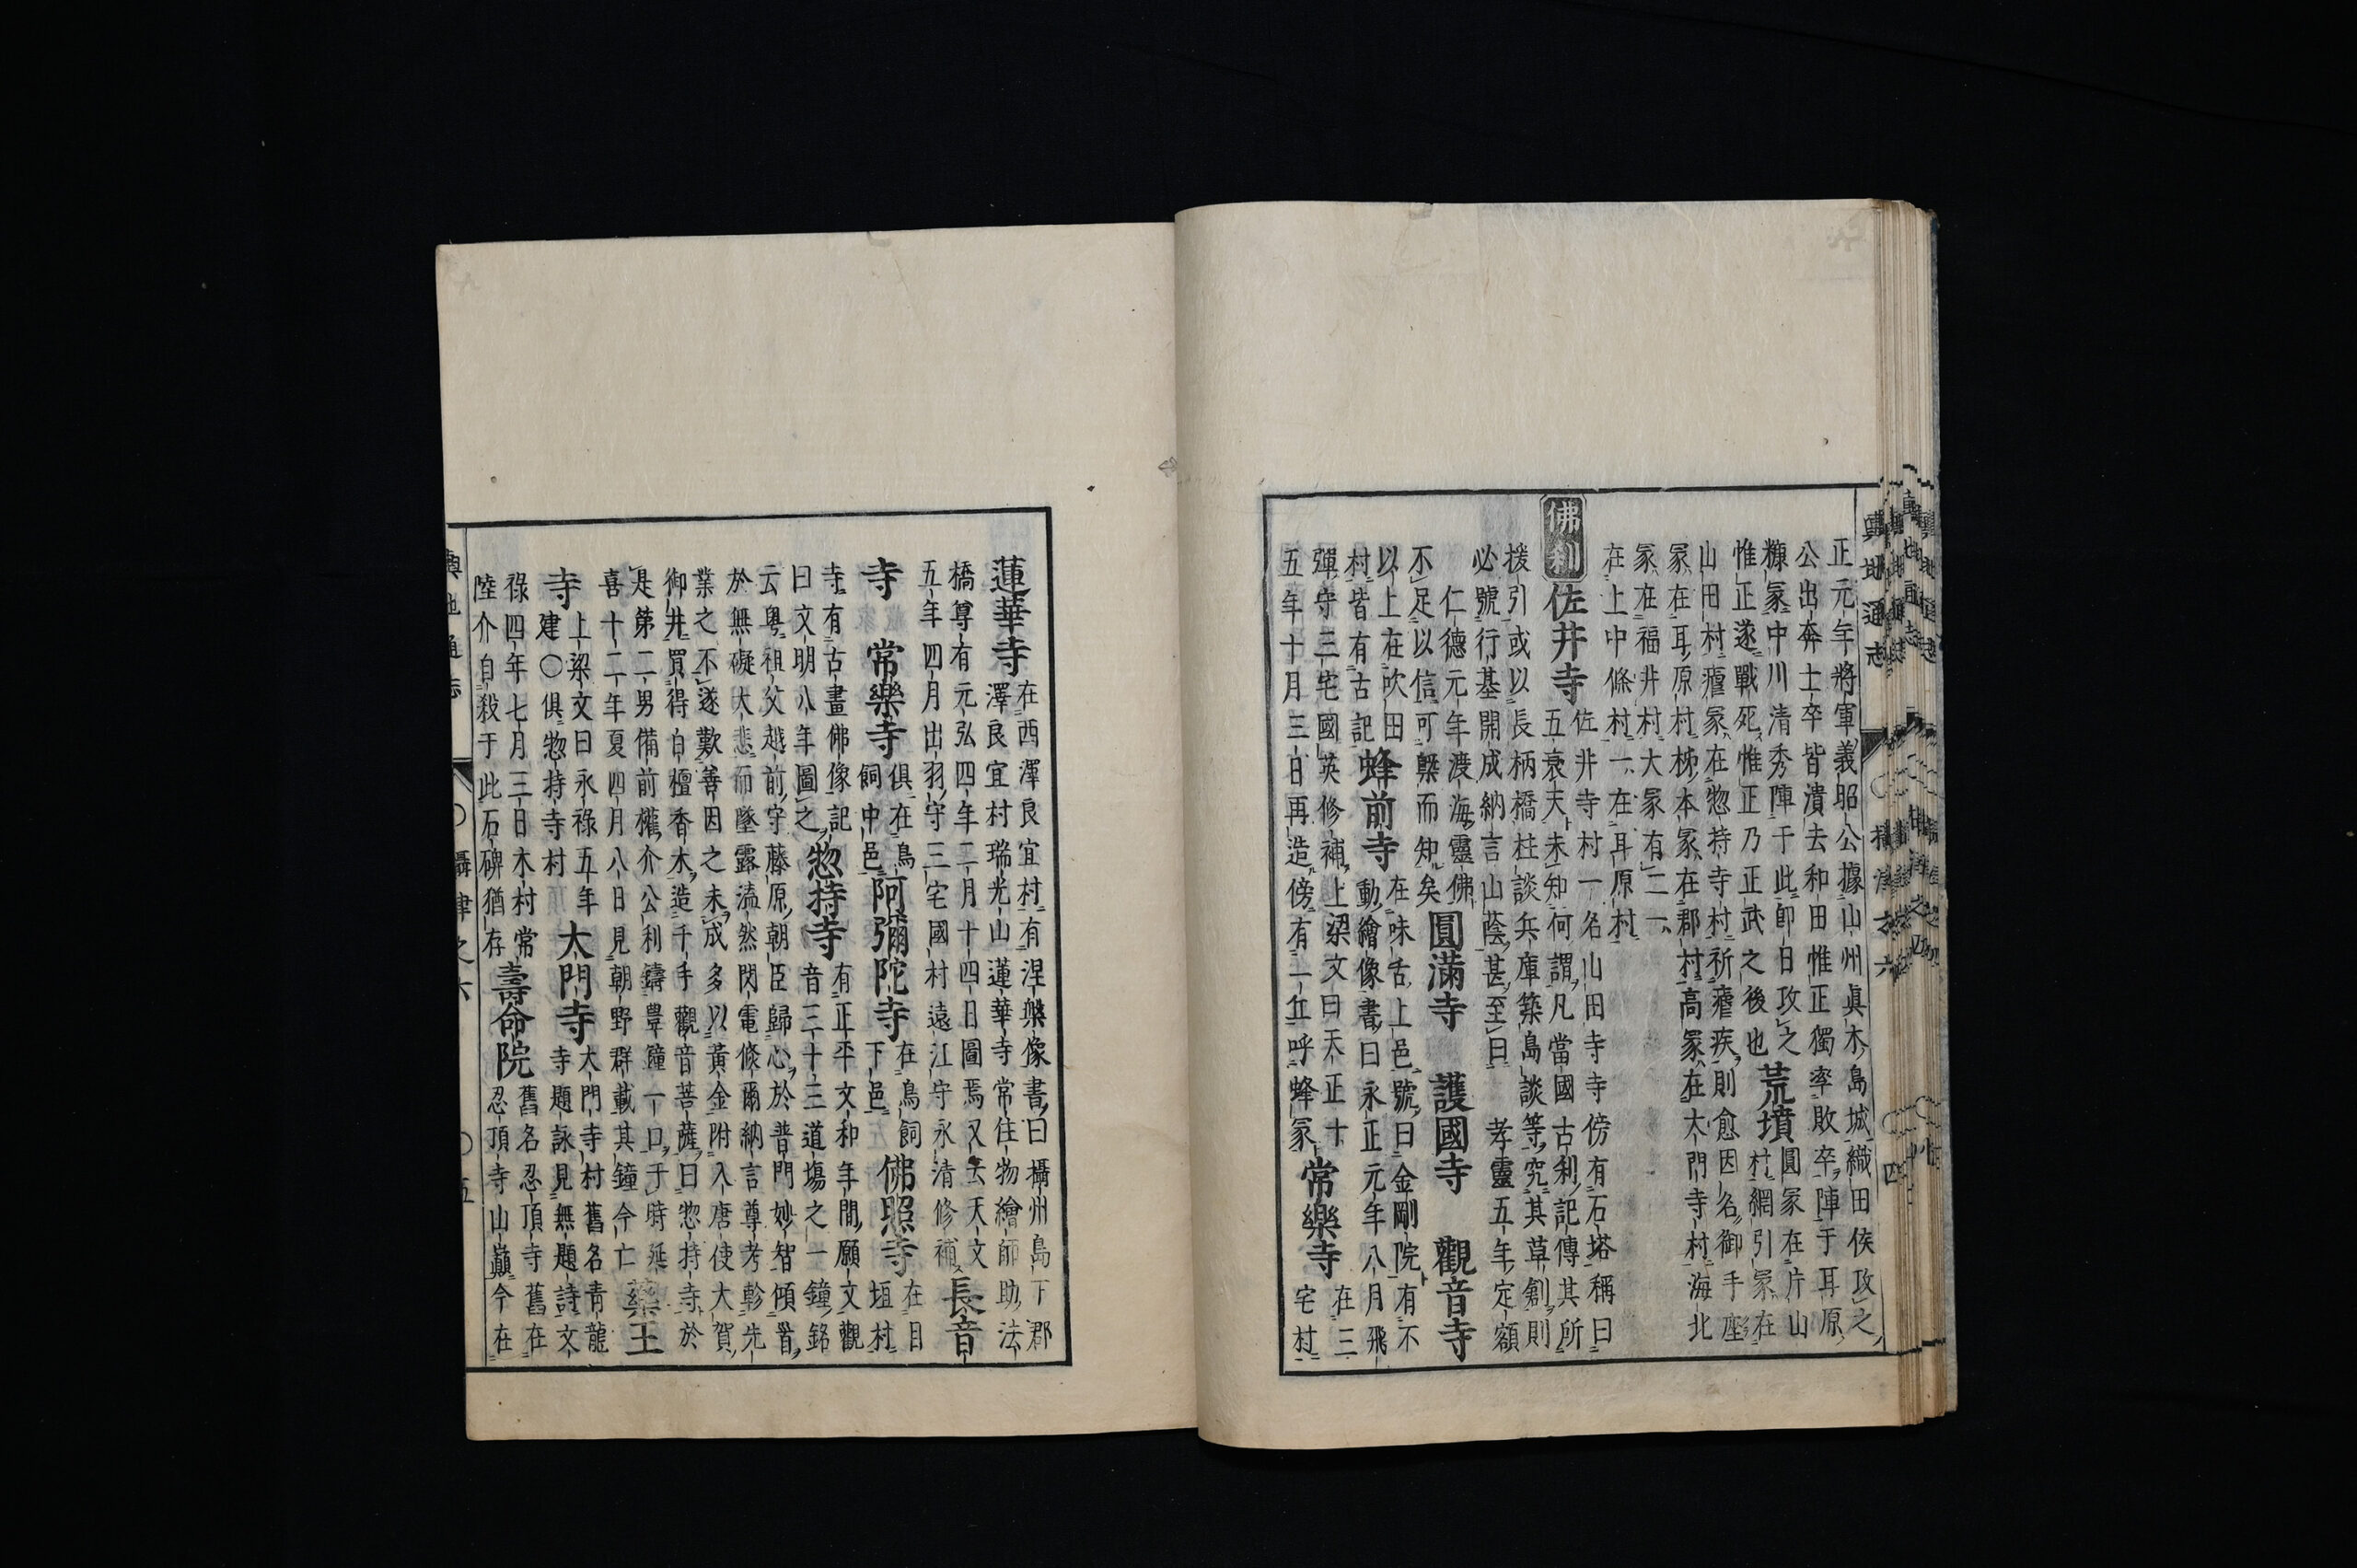 輿地通志
攝津之六
四
正元年將軍義昭公據山州眞木島城織田侯攻之
公出奔士卒皆潰去和田惟正獨率敗卒陣于耳原
糠冢中川清秀陣于此卽日攻之
惟正遂戰死惟正乃正武之後也
荒墳
圓冢在片山
村網引冢在
山田村瘧冢在惣持寺村祈瘧疾則愈因名御手座
冢在耳原村枕本冢在郡村高冢在大門寺村海北
冢在福井村大冢有二一
在上中條村一在耳原村
佛刹
佐井寺
佐井寺村一名山田寺寺傍有石塔稱曰
五衰天未知何謂凡當國古刹記傳其所
援引或以長柄橋柱談兵庫築島談等究其草創則
必號行基開成納言山蔭甚至曰 孝靈五年定額
仁德元年渡海靈佛
不足以信可槩而知矣
圓滿寺 護國寺 觀音寺
以上在吹田
村皆有古記
蜂前寺
在味舌上邑號曰金剛院有不
動繪像書曰永正元年八月飛
彈守三宅國英修補上梁文曰天正十
五年十月三日再造傍有一丘呼蜂冢
常樂寺
在三
宅村
蓮華寺
在西澤良宜村有涅槃像書曰攝州島下郡
澤良宜村瑞光山蓮華寺常住物繪師助法
橋尊有元弘四年二月十四日圖焉又云天文
五年四月出羽守三宅國村遠江守永清修補
長音
寺 常樂寺
俱在鳥
飼中邑
阿彌陀寺
在鳥飼
下邑
佛照寺
在目
垣村
寺有古畫佛像記
曰文明八年圖之
惣持寺
有正平文和年間願文觀
音三十三道場之一鐘銘
云粤祖父越前守藤原朝臣歸心於普門妙智傾首
於無礙大悲而墜露溘然閃電倏爾納言尊考軫先
業之不遂歎善因之未成多以黃金附入唐使大賀
御井買得白檀香木造千手觀音菩薩曰惣持寺於
是第二男備前權介公利鑄豐鐘一口于時延
喜十二年夏四月八日見朝野群載其鐘今亡
藥王
寺
上梁文曰永祿五年
建○俱惣持寺村
大門寺
大門寺村舊名青龍
寺題詠見無題詩文
祿四年七月三日木村常
陸介自殺于此石碑猶存
壽命院
舊名忍頂寺舊在
忍頂寺山巓今在
輿地通志
攝津之六
五